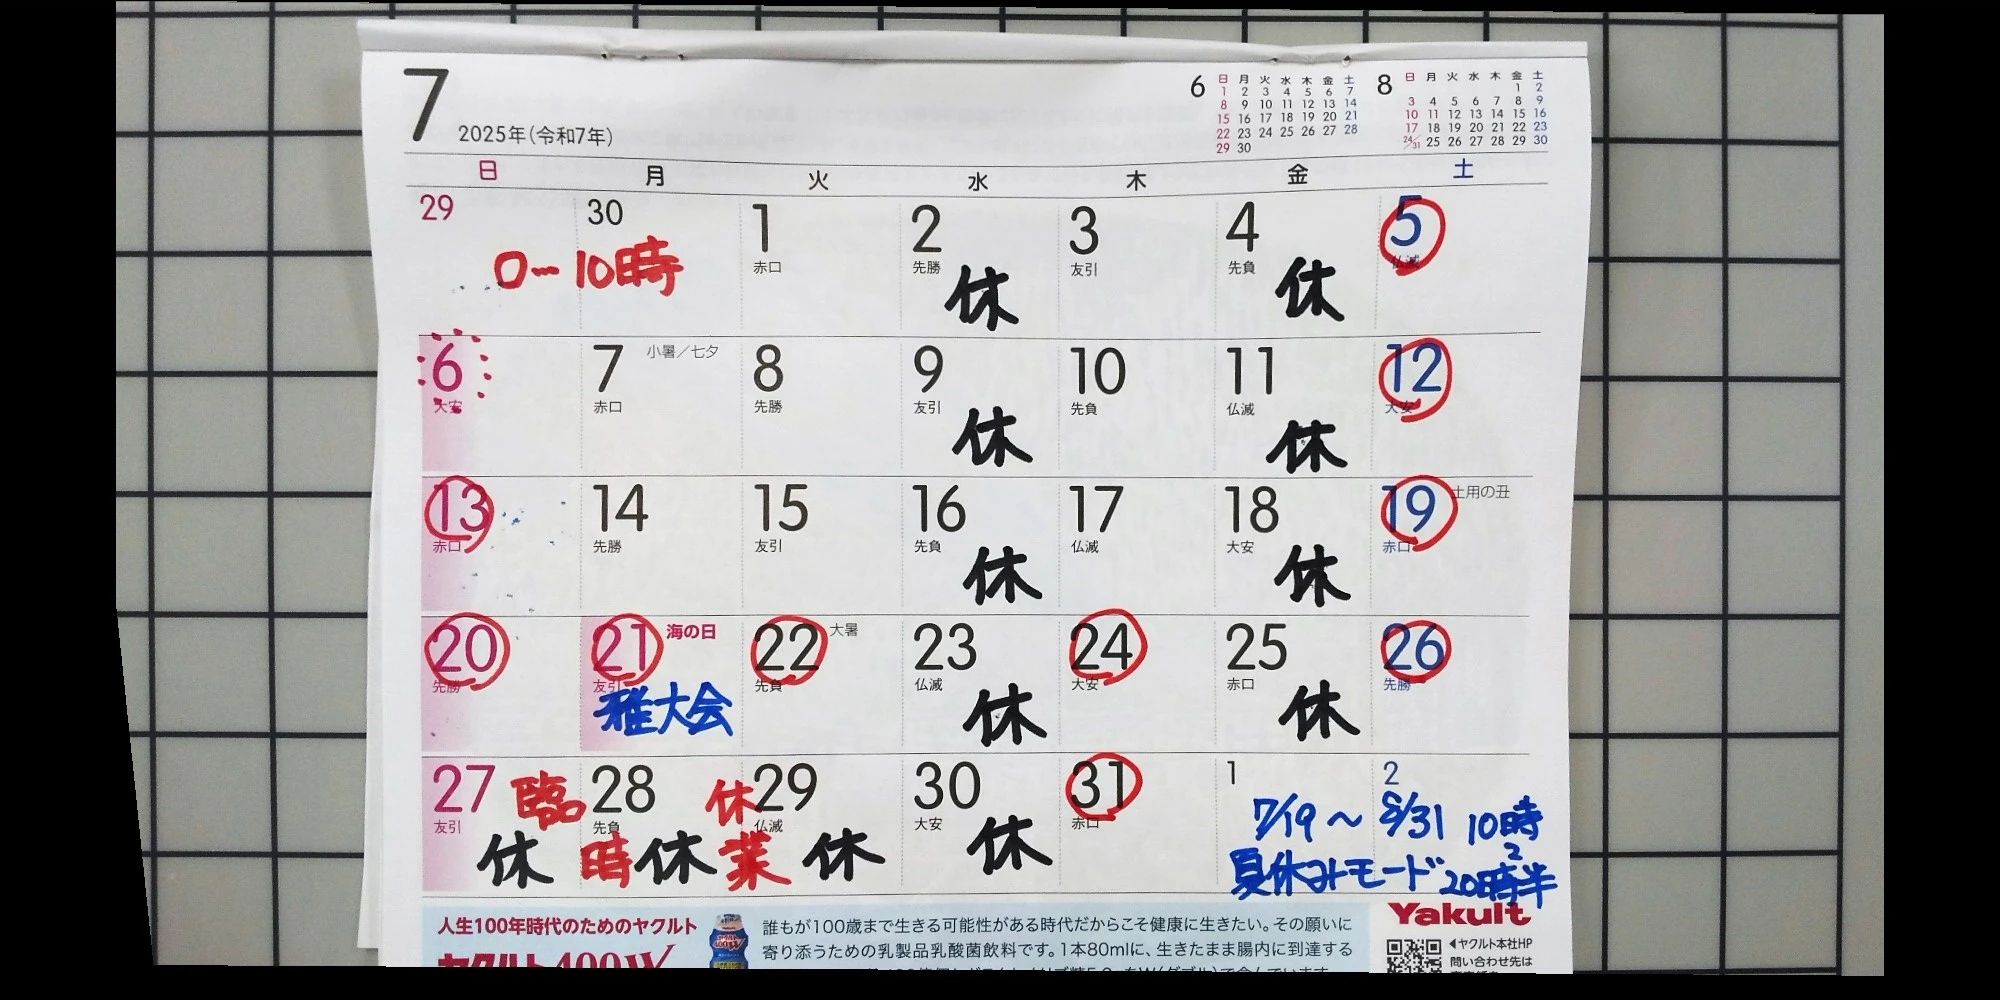 7 2025年(令和7年)
6 日 月 火 水 木 金 土
1 2 3 4 5 6 7
8 9 10 11 12 13 14
15 16 17 18 19 20 21
22 23 24 25 26 27 28
29 30
8 日 月 火 水 木 金 土
1 2
3 4 5 6 7 8 9
10 11 12 13 14 15 16
17 18 19 20 21 22 23
24/31 25 26 27 28 29 30
日 月 火 水 木 金 土
29 30 1 2 3 4 5
赤口 先勝 友引 先負 仏滅
〇…10時 休 休
6 7 小暑/七夕 8 9 10 11 12
大安 赤口 先勝 友引 先負 仏滅 大安
休 休
13 14 15 16 17 18 19 土用の丑
赤口 先勝 友引 先負 仏滅 大安 赤口
休 休
20 21 海の日 22 大暑 23 24 25 26
先勝 友引 先負 仏滅 大安 赤口 先勝
雅大会 休 休
27 臨 28 休 29 30 31 1 2
友引 先負 仏滅 大安 赤口
休 時 休 業 休 休
7/19～8/31 10時
夏休みモード 20時半
人生100年時代のためのヤクルト
ヤクルト400W
誰もが100歳まで生きる可能性がある時代だからこそ健康に生きたい。その願いに
寄り添うための乳製品乳酸菌飲料です。1本80mlに、生きたまま腸内に到達する
Yakult
◀ヤクルト本社HP
問い合わせ先は